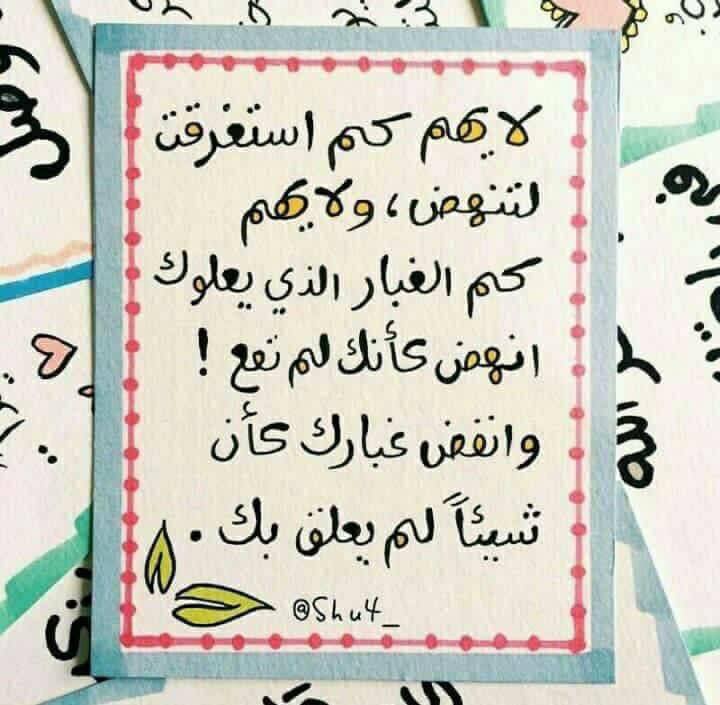 لا يهم كم استغرقت
لتنهض، ولا يهم
كم الغبار الذي يعلوك
انهض كأنك لم تقع !
وانفض غبارك كأن
شيئاً لم يعلق بك .
@Shu4_
الله